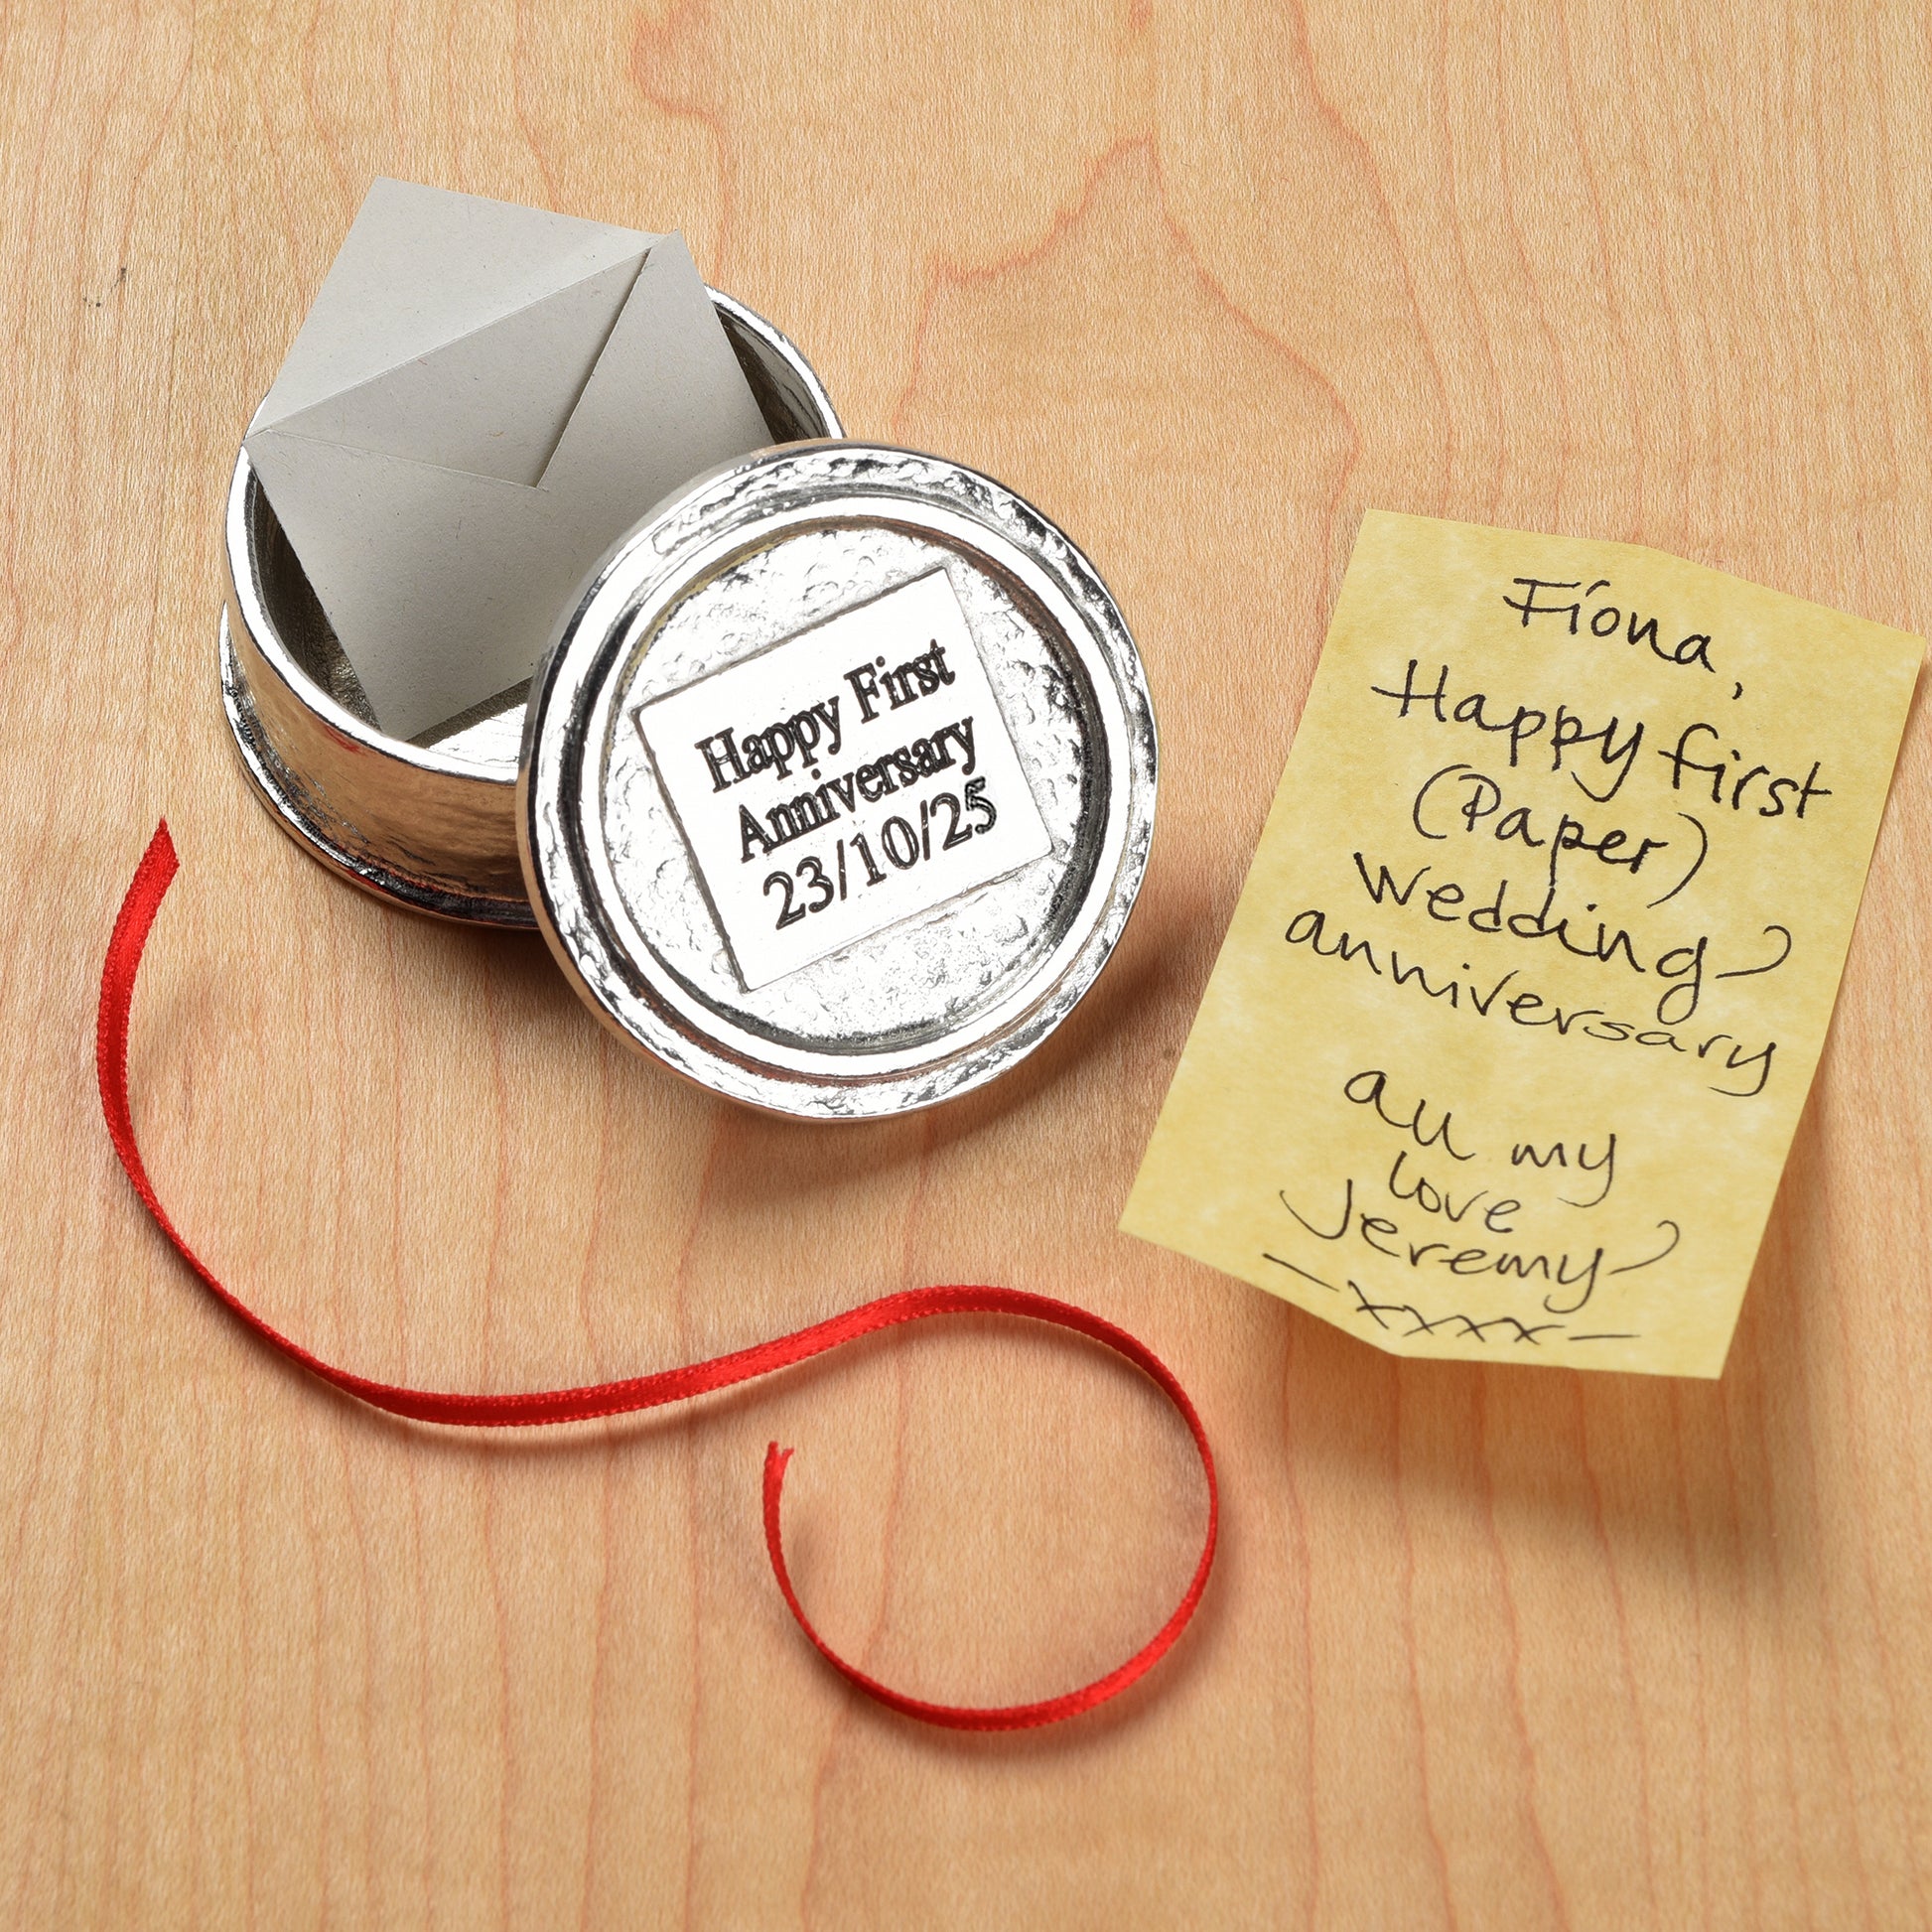 Happy First
Anniversary
23/10/25
Fiona,
Happy first
(Paper)
Wedding
anniversary
all my
love
Jeremy
xxxx